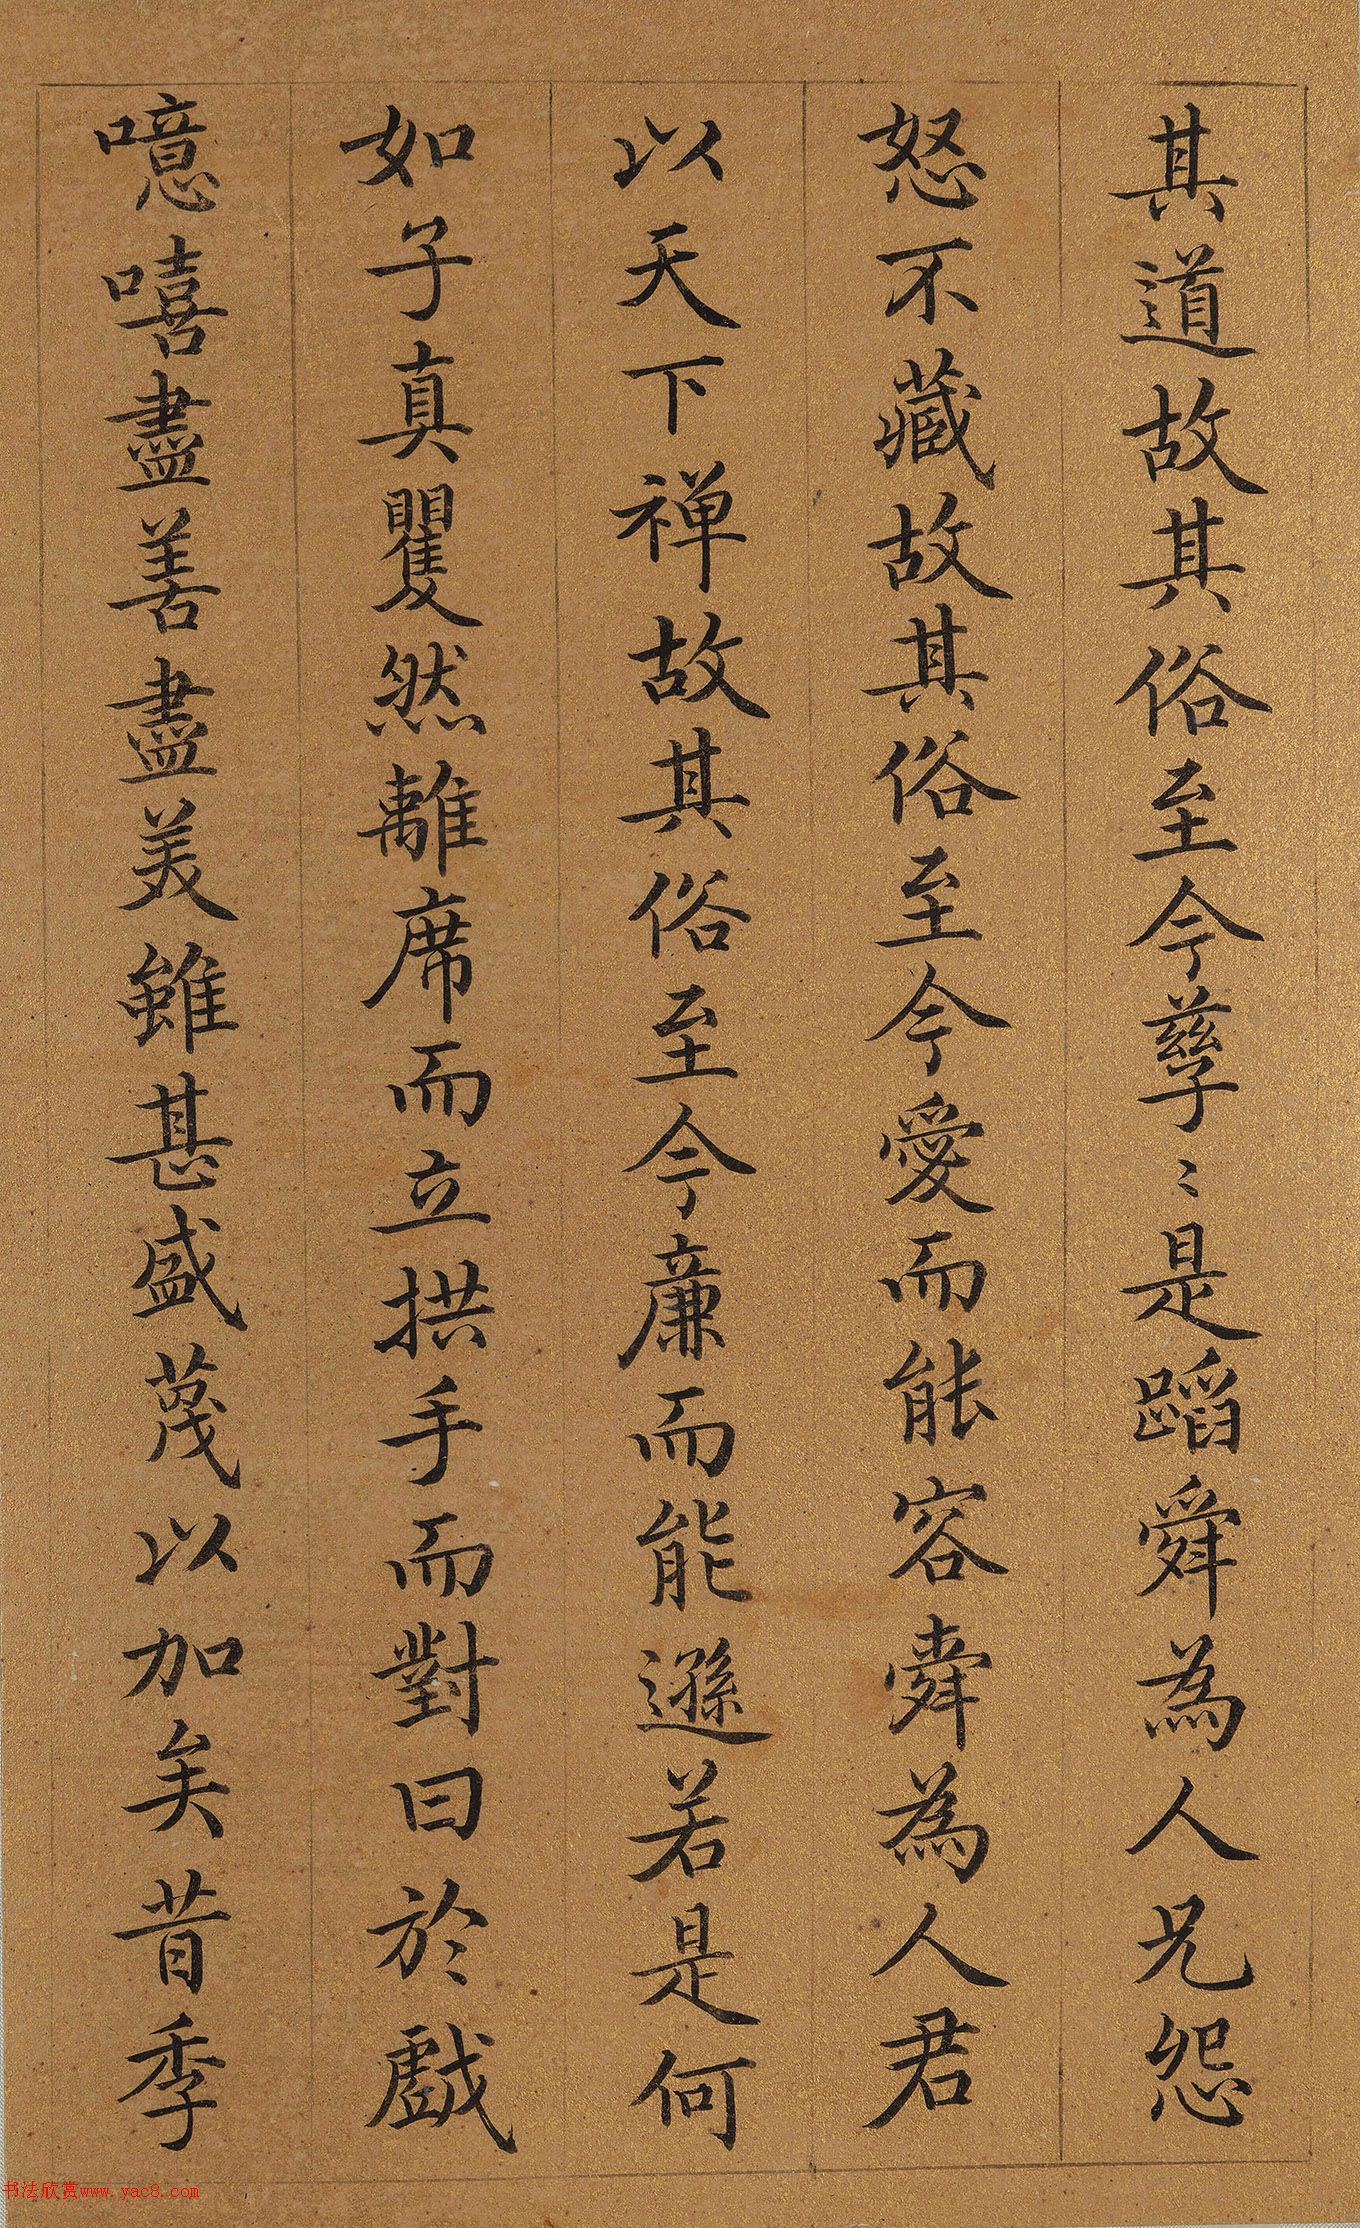 其道故其俗至今孳〻是蹈舜為人兄怨
怒不藏故其俗至今愛而能容舜為人君
以天下禅故其俗至今廉而能遜若是何
如子真瞿然離席而立拱手而對曰於戲
噫嘻盡善盡美雖甚盛蔑以加矣昔季
书法欣赏www.yac8.com